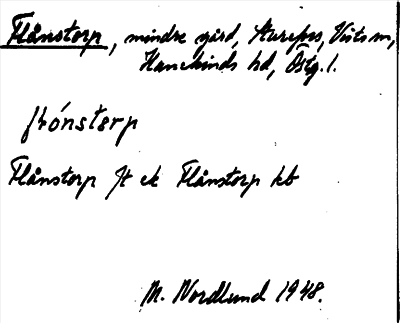 Flånstorp, mindre gård, Sturefors, Vists sn,
Hanekinds hd, Östg. l.
flónstørp
Flånstorp jt ek Flånstorp kb
M. Nordlund 1948.